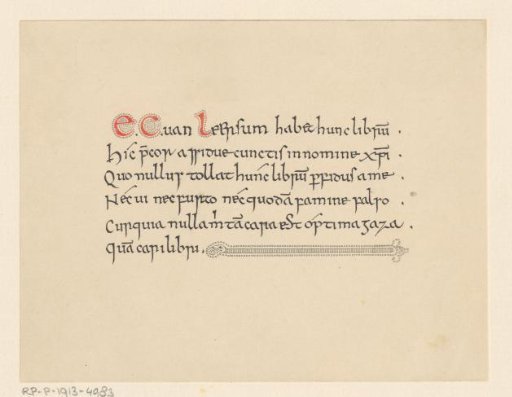 E. C. uan Lerrsum habet hunc librũ .
hic p̃cor assidue cunctis in nomine xp̃i
Quo nullus tollat hunc librũ p̱fidus a me .
Nec ui nec furto nec quodã famine falso
Cur quia nulla m̃ tã cara est optima gaza .
quã cari libri .
RP-P-1913-4083